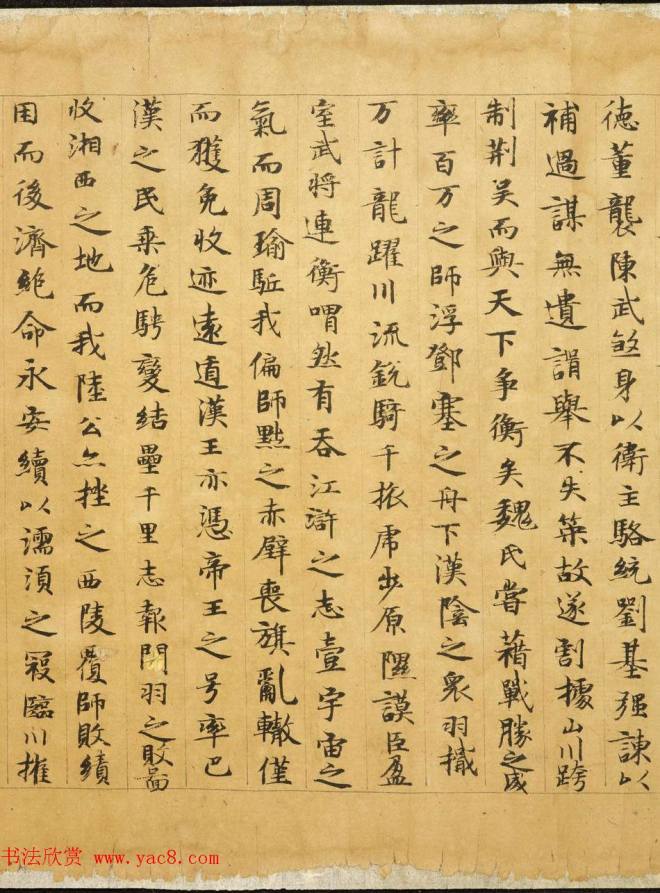 德董襲陳武煞身以衛主駱統劉基强諫以
補過謀無遺諝舉不失策故遂割據山川跨
制荆吴而與天下争衡矣魏氏嘗藉戰勝之威
率百万之師浮鄧塞之舟下漢陰之衆羽檝
万計龍躍川流銳騎千旅虎步原隰謨臣盈
室武將連衡喟然有吞江滸之志壹宇宙之
氣而周瑜駈我偏師黜之赤壁喪旗亂轍僅
而獲免收迹遠遁漢王亦憑帝王之号率巴
漢之民乘危騁變結壘千里志報關羽之敗啚
收湘西之地而我陸公亦挫之西陵覆師敗績
困而後濟絶命永安續以濡湏之寇臨川摧
书法欣赏 www.yac8.com